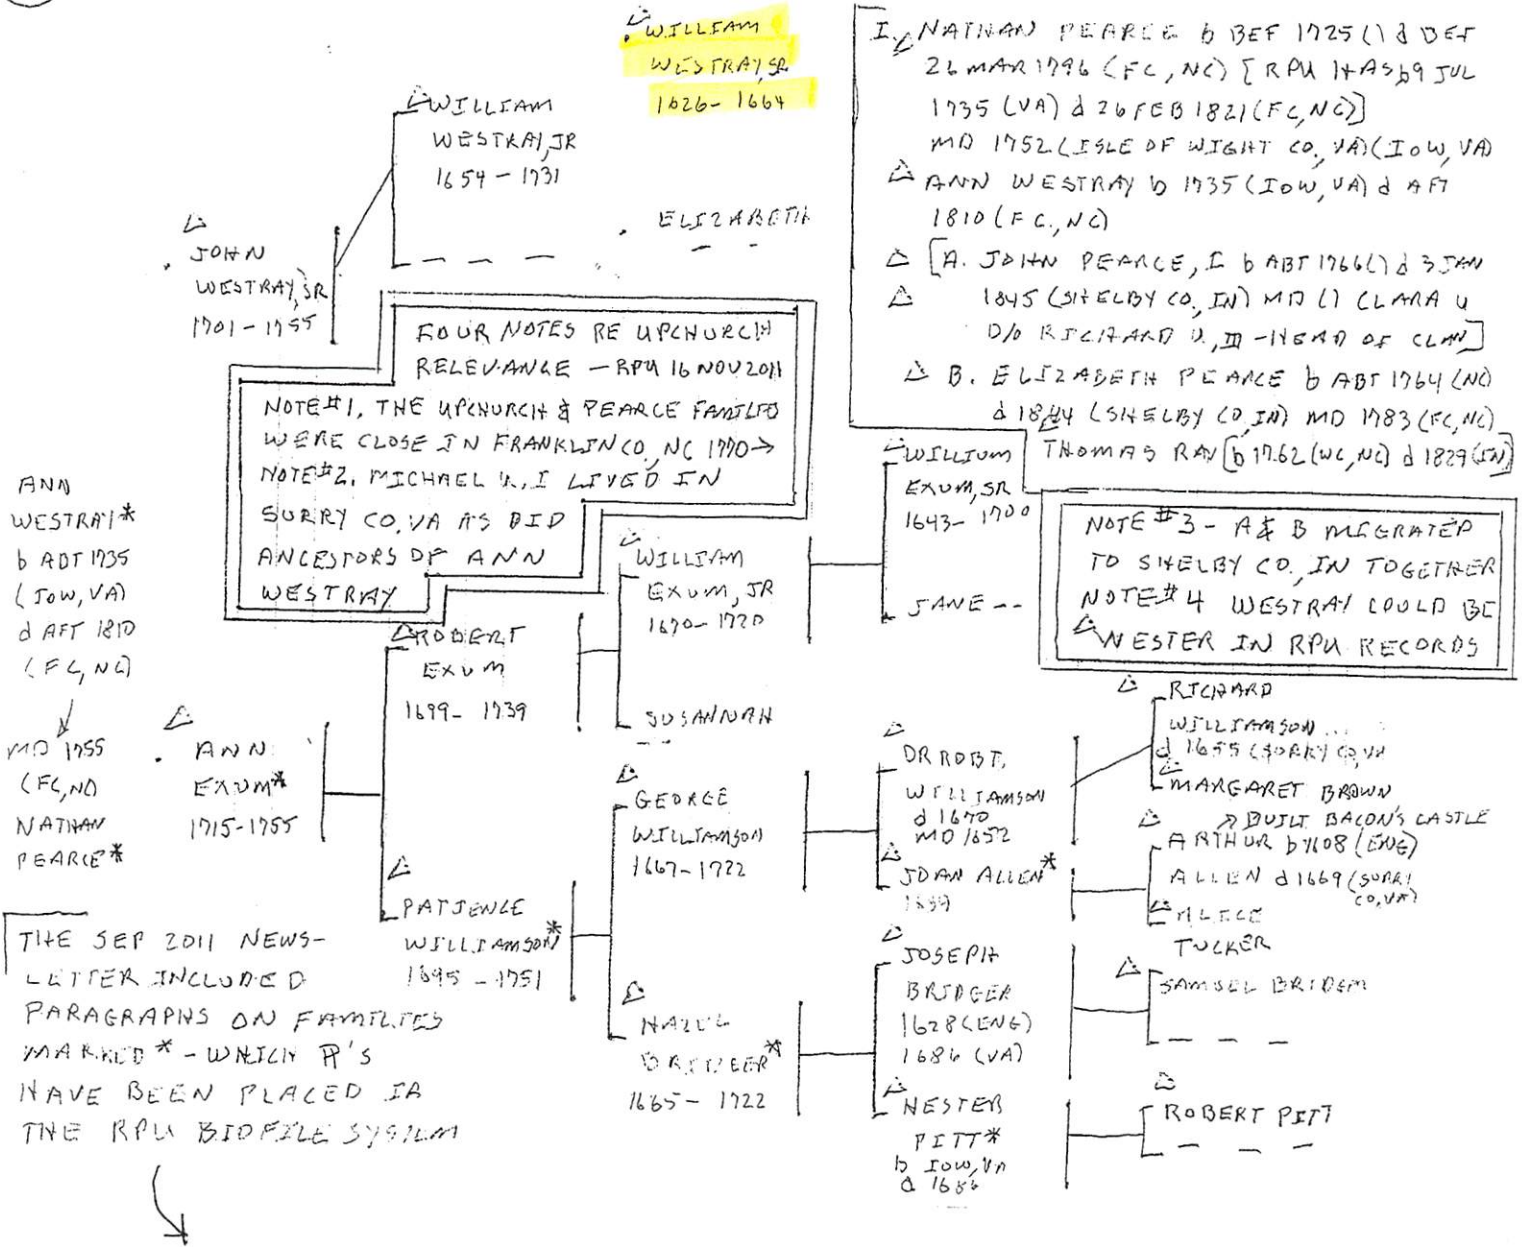 WILLIAM
WESTRAY, SR
1626 - 1664
WILLIAM
WESTRAY, JR
1654 - 1731
ELIZABETH
JOHN
WESTRAY, SR
1701 - 1755
I. NATHAN PEARCE b BEF 1725 () d BEF
26 MAR 1796 (FC, NC) [RPU HAS b 9 JUL
1735 (VA) d 26 FEB 1821 (FC, NC)]
MD 1752 (ISLE OF WIGHT CO., VA) (IOW, VA)
ANN WESTRAY b 1735 (IOW, VA) d AFT
1810 (FC., NC)
[A. JOHN PEARCE, I b ABT 1766 () d 3 JAN
1845 (SHELBY CO, IN) MD () CLARA U
D/O RICHARD U., III - HEAD OF CLAN]
B. ELIZABETH PEARCE b ABT 1764 (NC)
d 1844 (SHELBY CO, IN) MD 1783 (FC, NC)
THOMAS RAY [b 1762 (WC, NC) d 1829 (IN)]
FOUR NOTES RE UPCHURCH
RELEVANCE - RPU 16 NOV 2011
NOTE #1. THE UPCHURCH & PEARCE
WERE CLOSE IN FRANKLIN CO., NC 1770→
NOTE #2. MICHAEL U., I LIVED IN
SURRY CO. VA AS DID
ANCESTORS OF ANN
WESTRAY
NOTE #3 - A & B MIGRATED
TO SHELBY CO., IN TOGETHER
NOTE #4 WESTRAY COULD BE
WESTER IN RPU RECORDS
ANN
WESTRAY*
b ABT 1735
(IOW, VA)
d AFT 1810
(FC, NC)
MD 1755
(FC, NC)
NATHAN
PEARCE*
ANN
EXUM*
1715-1755
ROBERT
EXUM
1699 - 1739
PATIENCE
WILLIAMSON*
1695 - 1751
WILLIAM
EXUM, JR
1670 - 1720
SUSANNAH
GEORGE
WILLIAMSON
1667 - 1722
1665 - 1722
WILLIUM
EXUM, SR
1643 - 1700
JANE --
DR ROBT.
WILLIAMSON
d 1670
MD 1652
JOAN ALLEN*
JOSEPH
BRIDGER
1628 (ENG)
1686 (VA)
HESTER
PITT*
b IOW, VA
d 1686
RICHARD
WILLIAMSON
d 1655 (SORRY CO, VA
MARGARET BROWN
↗ BUILT BACON'S CASTLE
ARTHUR b 1608 (ENG)
ALLEN d 1669 (SURRY
CO, VA)
ALICE
TUCKER
SAMUEL
ROBERT PITT
THE SEP 2011 NEWS-
LETTER INCLUDED
PARAGRAPHS ON FAMILIES
MARKED * - WHICH ¶'S
HAVE BEEN PLACED IN
THE RPU BIOFILE SYSTEM